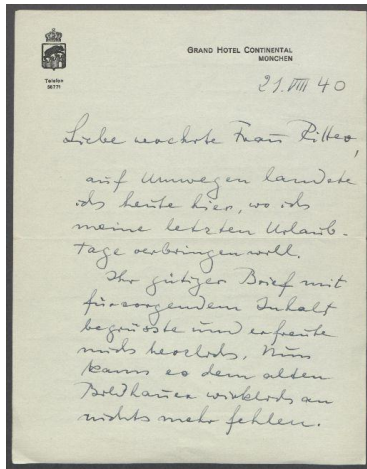 GRAND HOTEL CONTINENTAL
MÜNCHEN
Telefon
58771
21. VIII 40
Liebe verehrte Frau Ritter,
auf Umwegen landete
ich heute hier, wo ich
meine letzten Urlaub-
tage verbringen will.
Ihr gütiger Brief mit
fürsorgendem Inhalt
begrüsste und erfreute
mich herzlich. Nun
kann es dem alten
Bildhauer wirklich an
nichts mehr fehlen.